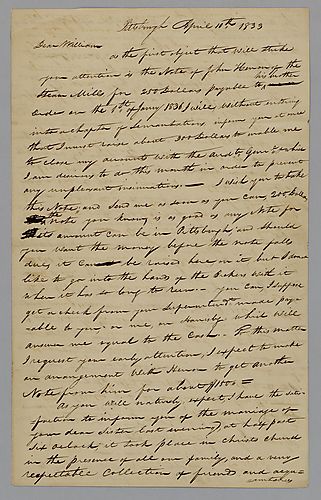 Pittsburgh April 10th 1833
Dear William
as the first object that will strike
your attention is the Note of John Herron of the
Steam Mills for 200 Dollars payable to his brother
order on the 1st of Jany 1834 I will, without entering
into a chapter of lamentations, inform you at once
that I must raise about 300 Dollars to enable me
to close my account with the
I am desirous to do this month in order to prevent
any unpleasant insinuations — I wish you to take
this Note, and send me as soon as you can, 200 Dolls
the Note you know is as good as my Note for
that amount can be in Pittsburgh, and should
you want the money before the note falls
due, it can be raised here on it but I don't
like to go into the hands of the Brokers with it
when it has so long to run — you can, I suppose
get a check from your Superintendt made pay-
able to you, or me, or Hornsby which will
answer me equal to the Cash. To this matter
I request your early attention, I expect to make
an arrangement with Herron to get another
Note from him for about $100 =
As you will naturally expect, I have the satis-
faction to inform you of the marriage of
your dear Sister last evening, at half past
Six oclock, it took place in Christs church
in the presence of all our family, and a very
respectable collection of friends and acqu-
aintances